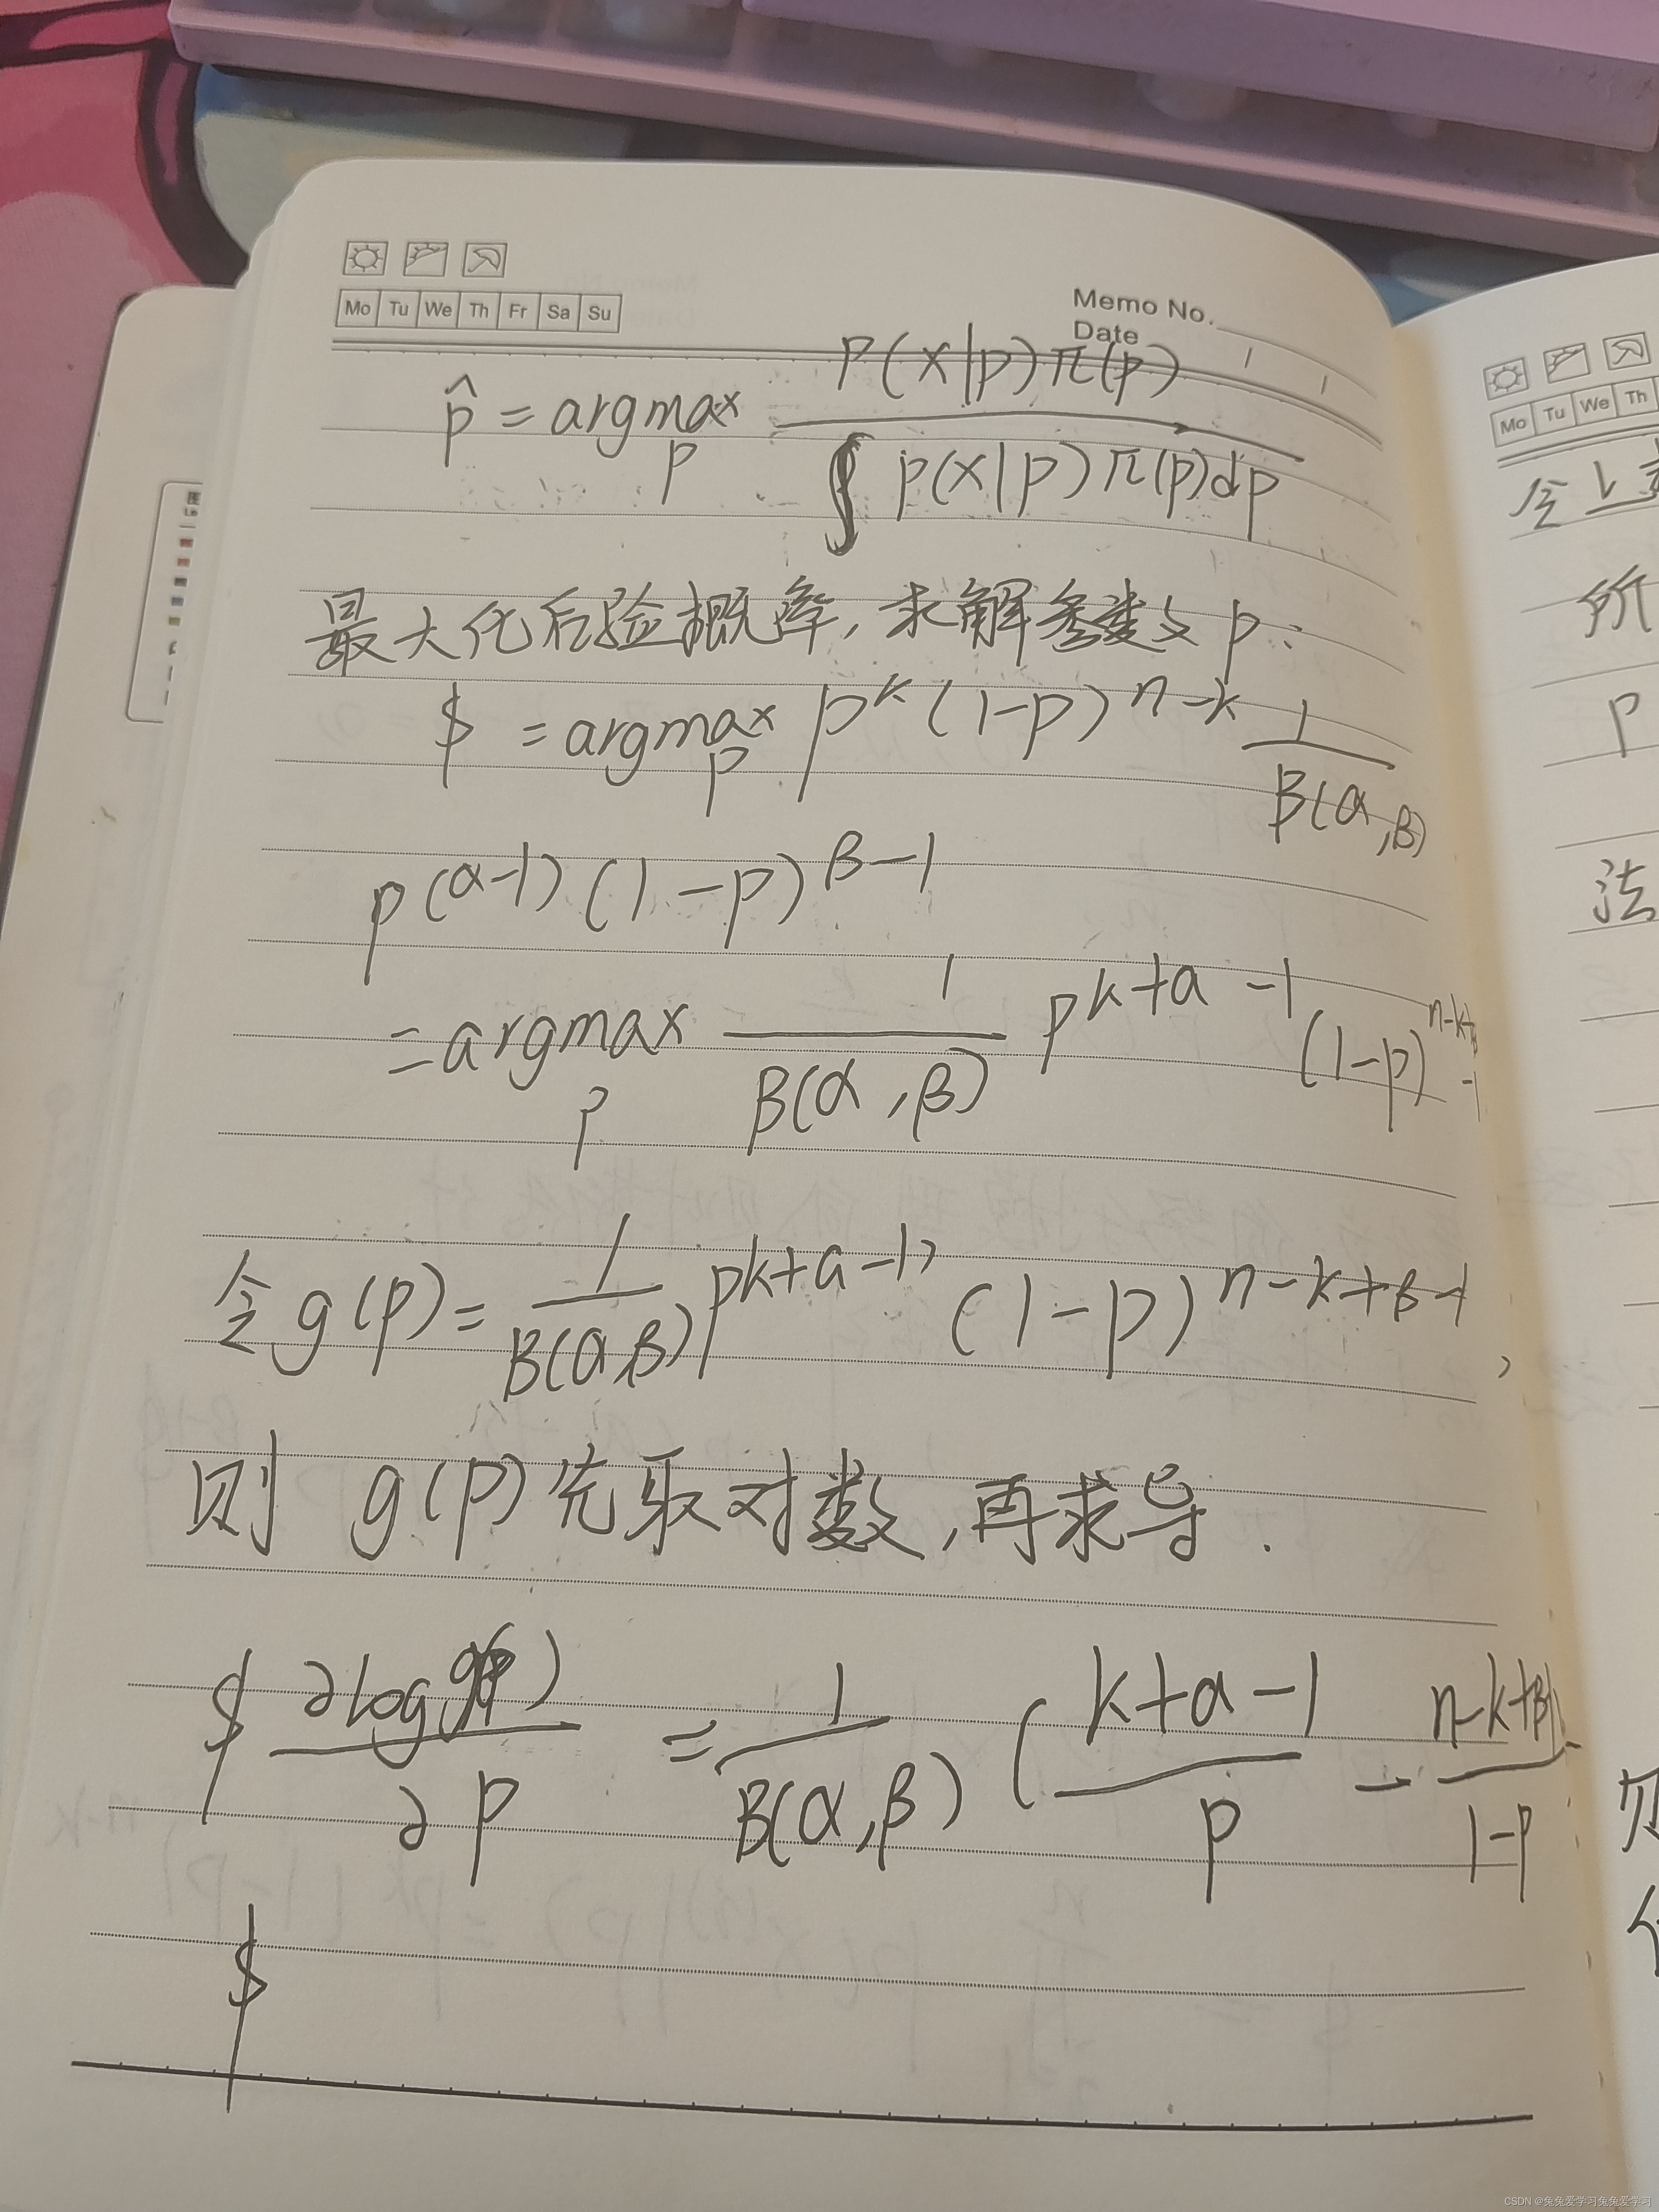 Mo Tu We Th Fr Sa Su
Memo No.
Date
p̂ = argmax_p P(x|p)π(p) / ∫ p(x|p)π(p)dp
最大化后验概率,求解参数 p:
= argmax_p p^k (1-p)^{n-k} 1/B(α,β)
p^{(α-1)} (1-p)^{β-1}
= argmax_p 1/B(α,β) p^{k+α-1} (1-p)^{n-k+β-1}
令 g(p) = 1/B(α,β) p^{k+α-1} (1-p)^{n-k+β-1},
则 g(p)先取对数,再求导.
∂log g(p) / ∂p = 1/B(α,β) ( k+α-1 / p - n-k+β- / 1-p
Mo Tu We Th
令上
所
P
法
CSDN @兔兔爱学习兔兔爱学习